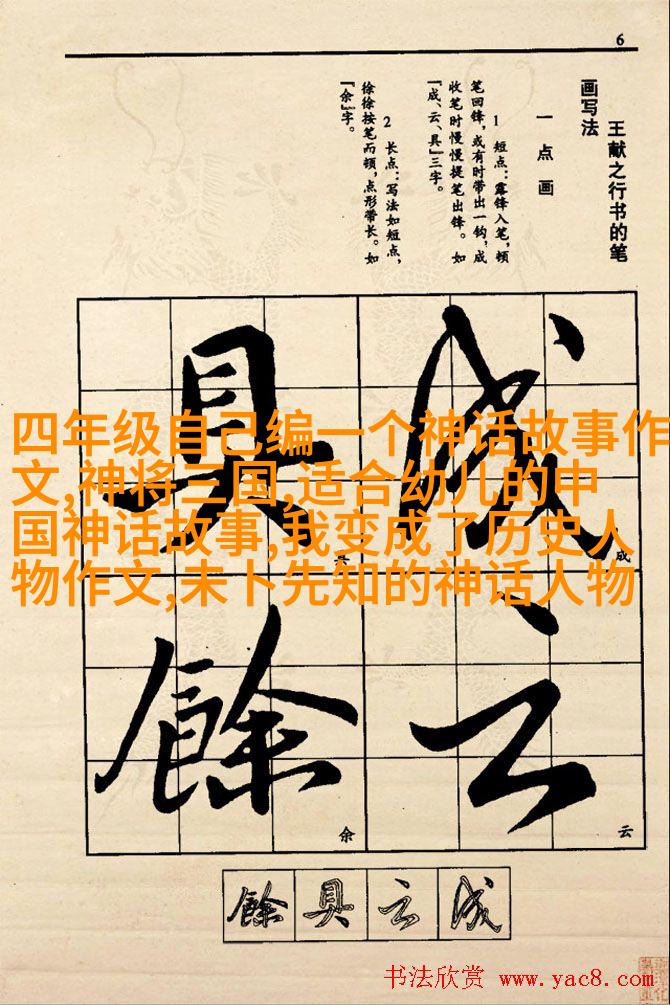 6
王献之行书的笔
画写法
一 点 画
1 短点：露锋入笔，顿
笔回锋，或有时带出一钩，成
收笔时慢慢提笔出锋。如
『成、云、具』三字。
2 长点：写法如短点，
徐徐按笔而顿，点形带长。如
『余』字。
四年级自己编一个神话故事作
文,神将三国,适合幼儿的中
国神话故事,我变成了历史人
物作文,未卜先知的神话人物
成
成
具
具
云
云
餘
余
餘 具 云 成
书法欣赏 www.yac8.com